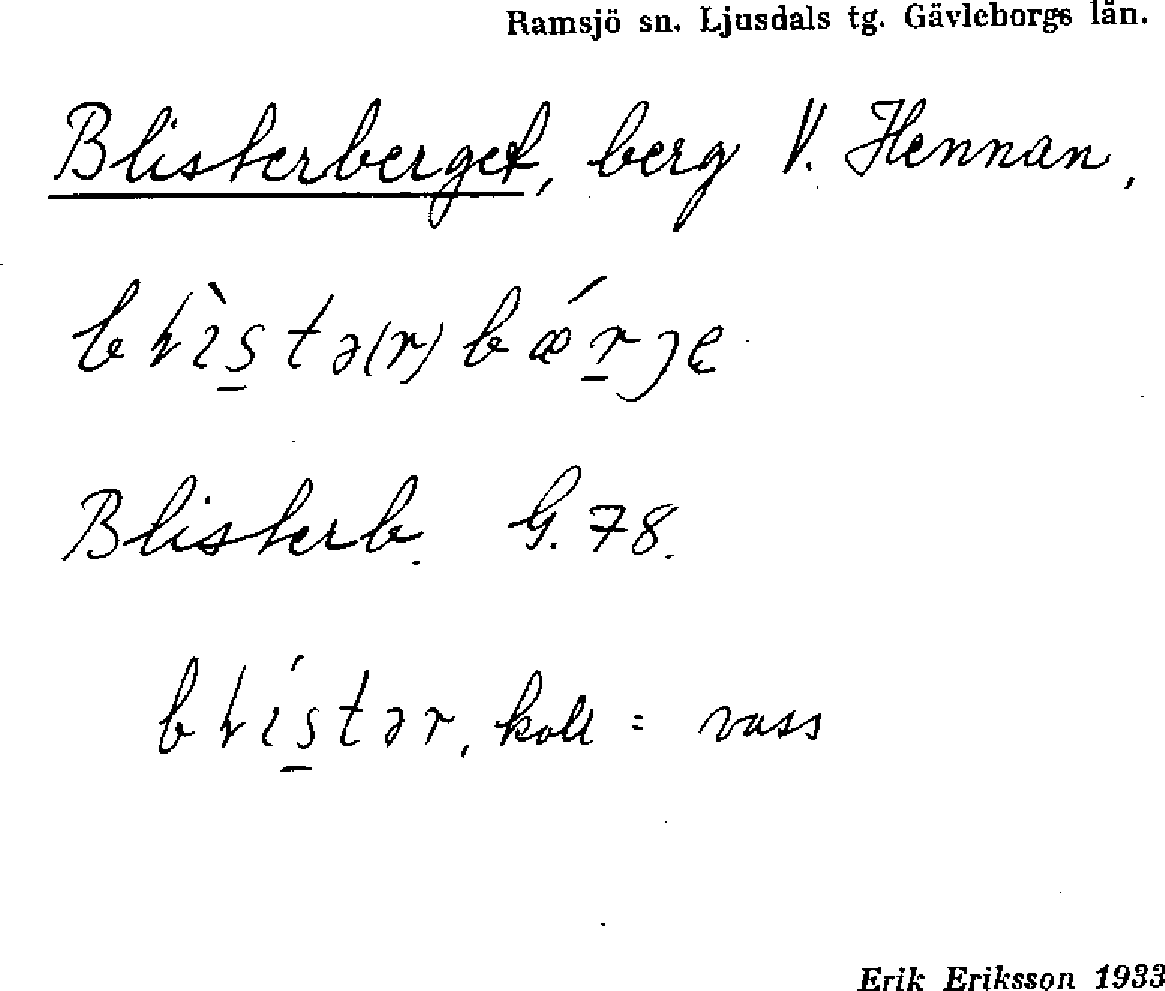 Ramsjö sn. Ljusdals tg. Gävleborgs län.
Blisterberget, berg V. Hennan,
Blisterb. G. 78.
koll = vass
Erik Eriksson 1933